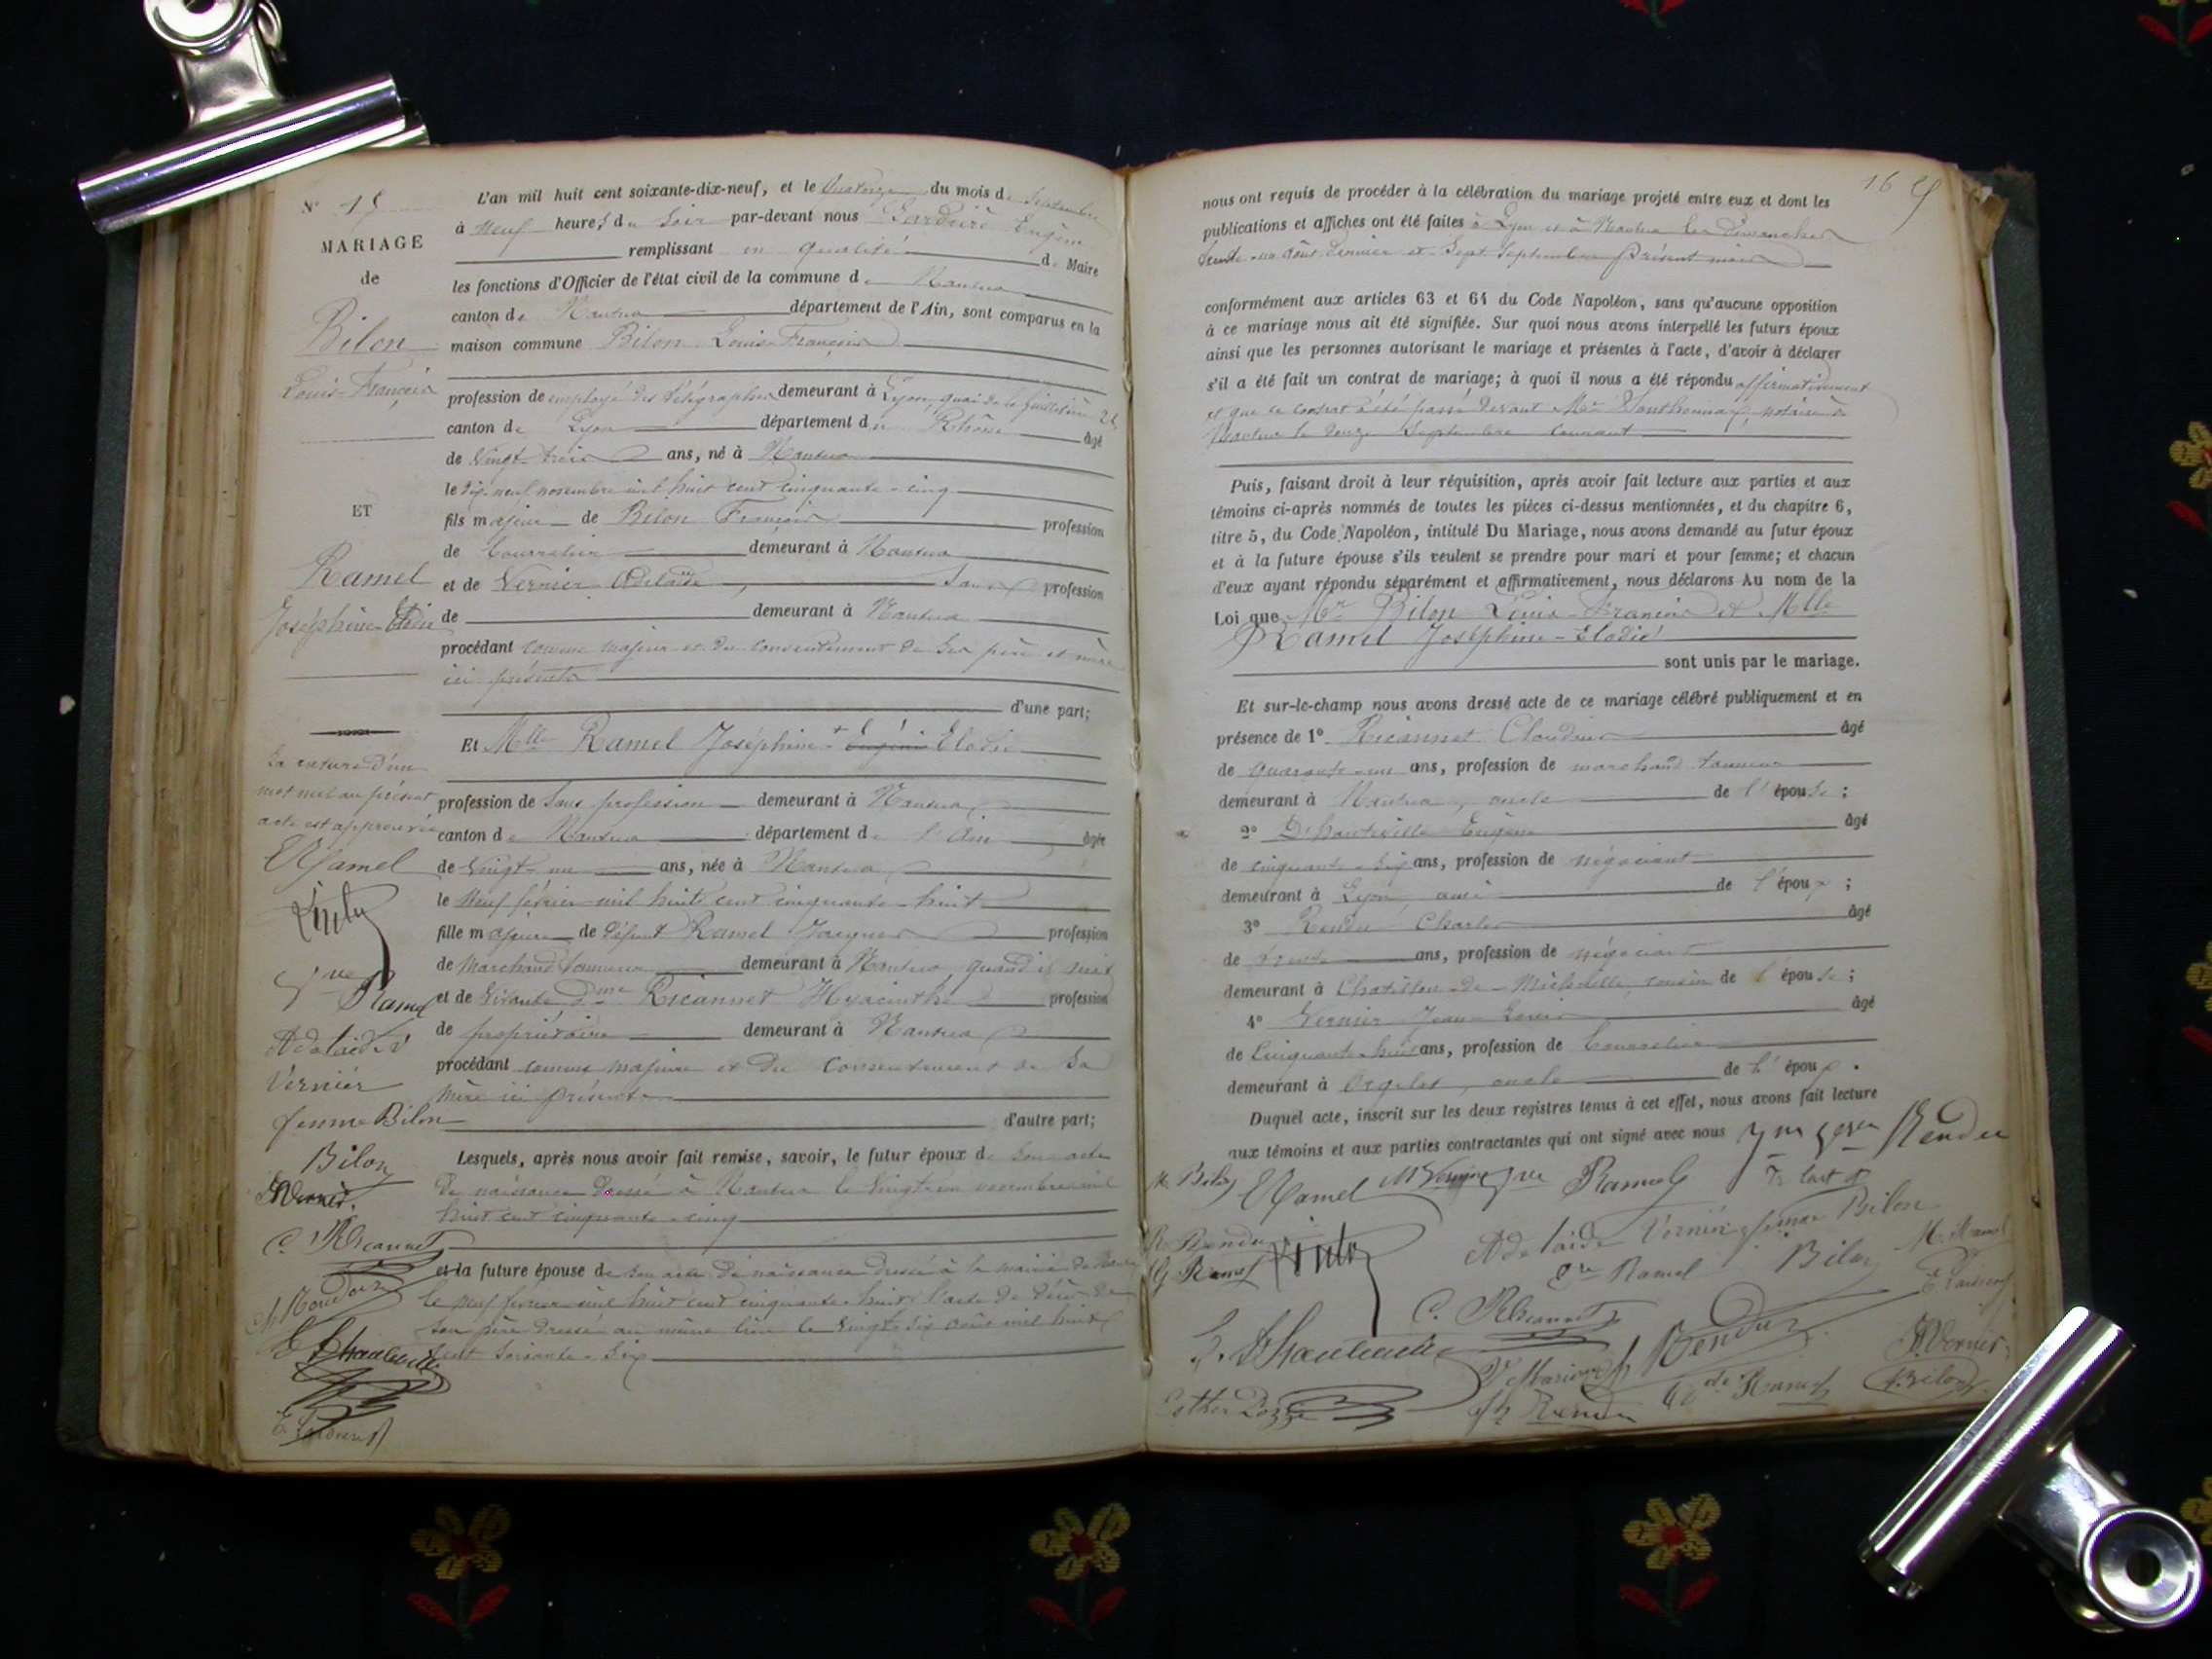 N° 15
MARIAGE
de
Bilon
Louis-François
ET
Ramel
Joséphine-Elodie
La rature d'un
mot nul au présent
acte est approuvée
E Ramel
Vve Ramel
Adelaïde
Vernier
femme Bilon
Bilon
JVernier
C. Ricannet
L'an mil huit cent soixante-dix-neuf, et le Quatorze du mois de Septembre
à Neuf heures du Soir par-devant nous Eugène
remplissant en qualité de Maire
les fonctions d'Officier de l'état civil de la commune de Nantua
canton de Nantua département de l'Ain, sont comparus en la
maison commune Bilon Louis-François
profession de employé des télégraphes demeurant à Lyon, quai de la Guillotière
canton de Lyon département du Rhône âgé
de Vingt-trois ans, né à Nantua
le dix-neuf novembre mil huit cent cinquante-cinq
fils majeur de Bilon François profession
de Bourrelier demeurant à Nantua
et de Vernier Adelaïde, Sans profession
de demeurant à Nantua
procédant comme majeur et du consentement de Ses père et mère
ici présents
d'une part;
Et Mlle Ramel Joséphine + Eugénie Elodie
profession de Sans profession demeurant à Nantua
canton de Nantua département de l'Ain âgée
de Vingt-un ans, née à Nantua
le Neuf février mil huit cent cinquante-huit
fille majeure de défunt Ramel Jacques profession
de Marchand tanneur demeurant à Nantua, quand il vivait
et de Vivante dme Ricannet Hyacinthe profession
de propriétaire demeurant à Nantua
procédant comme majeure et du consentement de Sa
mère ici présente
d'autre part;
Lesquels, après nous avoir fait remise, savoir, le futur époux de Son acte
de naissance dressé à Nantua le Vingt-un novembre mil
huit cent cinquante-cinq
et la future épouse de Son acte de naissance dressé à la mairie de Nantua
le neuf février mil huit cent cinquante-huit, l'acte de décès de
Son père dressé au même lieu le Vingt-Six août mil huit
cent Soixante-Six
16
nous ont requis de procéder à la célébration du mariage projeté entre eux et dont les
publications et affiches ont été faites à Lyon et à Nantua les Dimanches
trente-un août dernier et Sept Septembre présent mois
conformément aux articles 63 et 64 du Code Napoléon, sans qu'aucune opposition
à ce mariage nous ait été signifiée. Sur quoi nous avons interpellé les futurs époux
ainsi que les personnes autorisant le mariage et présentes à l'acte, d'avoir à déclarer
s'il a été fait un contrat de mariage; à quoi il nous a été répondu affirmativement
et que ce contrat a été passé devant Me notaire à
Nantua le douze Septembre courant
Puis, faisant droit à leur réquisition, après avoir fait lecture aux parties et aux
témoins ci-après nommés de toutes les pièces ci-dessus mentionnées, et du chapitre 6,
titre 5, du Code Napoléon, intitulé Du Mariage, nous avons demandé au futur époux
et à la future épouse s'ils veulent se prendre pour mari et pour femme; et chacun
d'eux ayant répondu séparément et affirmativement, nous déclarons Au nom de la
Loi que Mr Bilon Louis-François et Mlle
Ramel Joséphine-Elodie
sont unis par le mariage.
Et sur-le-champ nous avons dressé acte de ce mariage célébré publiquement et en
présence de 1° Ricannet Claudius âgé
de quarante-un ans, profession de marchand tanneur
demeurant à Nantua, oncle de l'épouse;
2° D'hauteville Eugène âgé
de cinquante-six ans, profession de négociant
demeurant à Lyon, ami de l'époux;
3° Rendu Charles âgé
de trente ans, profession de négociant
demeurant à Chatillon-de-Michaille, cousin de l'épouse;
4° Vernier Jean-Louis âgé
de Cinquante-huit ans, profession de Bourrelier
demeurant à Orgelet, oncle de l'époux.
Duquel acte, inscrit sur les deux registres tenus à cet effet, nous avons fait lecture
aux témoins et aux parties contractantes qui ont signé avec nous
Rendu
E Ramel
Vve Ramel
R. Rendu
G Ramel
Adelaïde Vernier femme Bilon
Ramel
Bilon
M. Ramel
C. Ricannet
E. D'hauteville
Rendu
JVernier
Ramel
Bilon
Esther